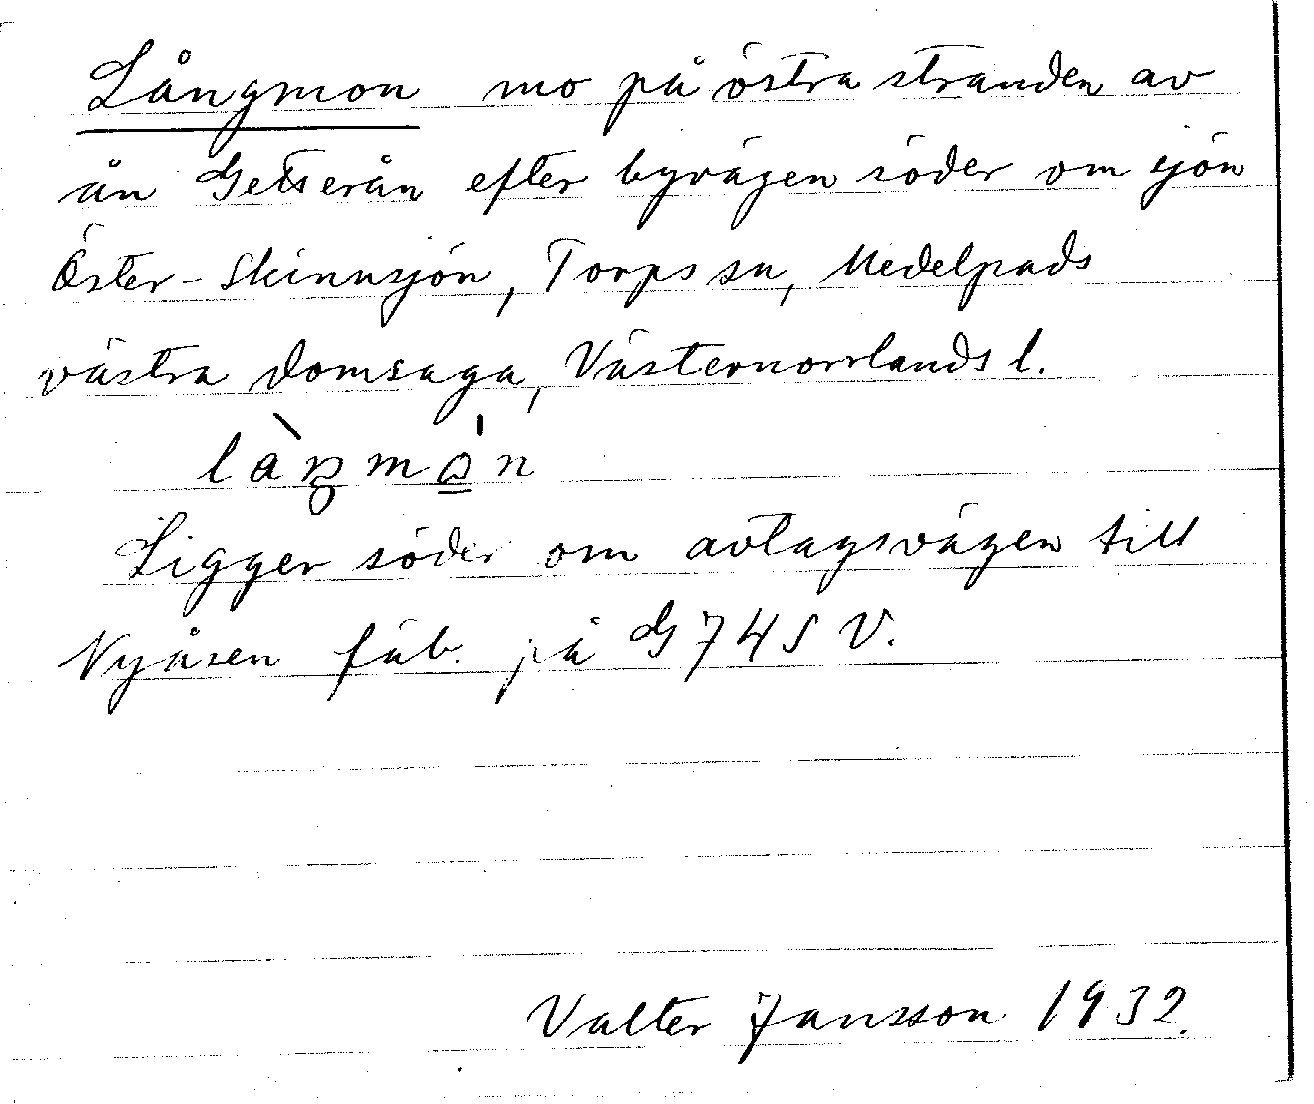 Långmon mo på östra stranden av
ån Getterån efter byvägen söder om sjön
Öster-Skinnsjön, Torps sn, Medelpads
västra domsaga, Västernorrlands l.
Ligger söder om avtagsvägen till
Nyåsen fäb. på G 74 S V.
Valter Jansson 1932.